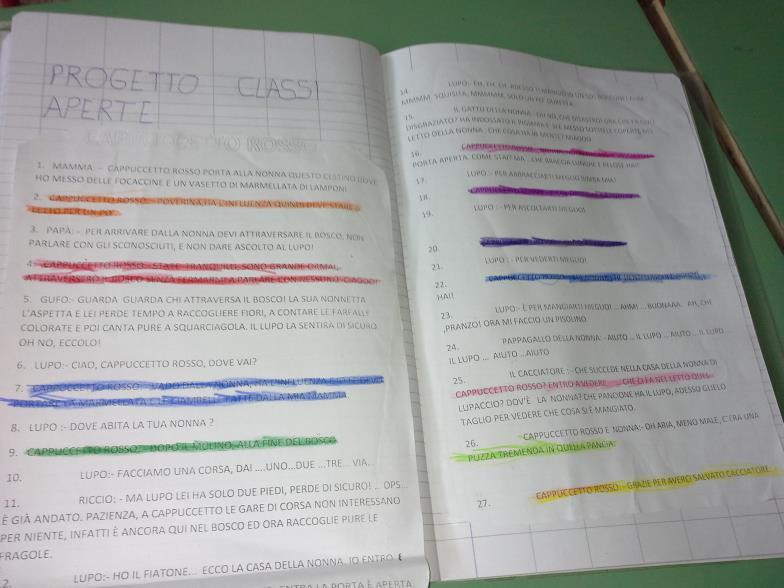 PROGETTO CLASSI
APERTE
CAPPUCCETTO ROSSO
1. MAMMA: - CAPPUCCETTO ROSSO PORTA ALLA NONNA QUESTO CESTINO DOVE
HO MESSO DELLE FOCACCONE E UN VASETTO DI MARMELLATA DI LAMPONI
2. CAPPUCCETTO ROSSO:- POVERINA, HA L'INFLUENZA QUINDI DEVE STARE A
LETTO PER UN PO'
3. PAPÀ: - PER ARRIVARE DALLA NONNA DEVI ATTRAVERSARE IL BOSCO, NON
PARLARE CON GLI SCONOSCIUTI, E NON DARE ASCOLTO AL LUPO!
4. CAPPUCCETTO ROSSO:- STATE TRANQUILLI, SONO GRANDE ORMAI,
ATTRAVERSERÒ IL BOSCO SENZA FERMARMI A PARLARE CON NESSUNO. CIAOOO!
5. GUFO:- GUARDA GUARDA CHI ATTRAVERSA IL BOSCO! LA SUA NONNETTA
L'ASPETTA E LEI PERDE TEMPO A RACCOGLIERE FIORI, A CONTARE LE FARFALLE
COLORATE E POI CANTA PURE A SQUARCIAGOLA. IL LUPO LA SENTIRÀ DI SICURO
OH NO, ECCOLO!
6. LUPO:- CIAO, CAPPUCCETTO ROSSO, DOVE VAI?
7. CAPPUCCETTO ROSSO:- VADO DALLA NONNA, HA L'INFLUENZA E LE DEVO
PORTARE LA MARMELLATA E LE CIAMBELLE FATTE DALLA MIA MAMMA
8. LUPO :- DOVE ABITA LA TUA NONNA ?
9. CAPPUCCETTO ROSSO:- DOPO IL MULINO, ALLA FINE DEL BOSCO
10. LUPO:- FACCIAMO UNA CORSA, DAI ....UNO...DUE ...TRE... VIA..
11. RICCIO: - MA LUPO LEI HA SOLO DUE PIEDI, PERDE DI SICURO! ... OPS...
È GIÀ ANDATO. PAZIENZA, A CAPPUCCETTO LE GARE DI CORSA NON INTERESSANO
PER NIENTE, INFATTI È ANCORA QUI NEL BOSCO ED ORA RACCOGLIE PURE LE
FRAGOLE.
2. LUPO:- HO IL FIATONE... ECCO LA CASA DELLA NONNA. IO ENTRO E
ENTRA LA PORTA È APERTA.
14. LUPO:- EH, EH, EH, ADESSO TI MANGIO IN UN SOL BOCCONE
MMMM. SQUISITA, MMMMM, SOLO UN PO' DURETTA.
15. IL GATTO DELLA NONNA:- OH NO, CHE DISASTRO! ORA CHE FA QUEL
DISGRAZIATO? HA INDOSSATO IL PIGIAMA E SI È MESSO SOTTO LE COPERTE NEL
LETTO DELLA NONNA , CHE COSA HA IN MENTE? MIAOOO
16. CAPPUCCETTO ROSSO:-
PORTA APERTA. COME STAI? MA , CHE BRACCIA LUNGHE E PELOSE HAI?
17. LUPO :- PER ABBRACCIARTI MEGLIO BIMBA MIA!
18. CAPPUCCETTO ROSSO:-
19. LUPO :- PER ASCOLTARTI MEGLIO!
20.
21. LUPO :- PER VEDERTI MEGLIO!
22. CAPPUCCETTO ROSSO :-
HAI!
23. LUPO:- È PER MANGIARTI MEGLIO! ... AHM! ... BUONAAA. AH, CHE
,PRANZO! ORA MI FACCIO UN PISOLINO
24. PAPPAGALLO DELLA NONNA:- AIUTO ... IL LUPO ... AIUTO ... IL LUPO ...
IL LUPO ... AIUTO ...AIUTO
25. IL CACCIATORE :- CHE SUCCEDE NELLA CASA DELLA NONNA DI
CAPPUCCETTO ROSSO? ENTRO A VEDERE ..... CHE CI FA NEL LETTO QUEL
LUPACCIO? DOV'È LA NONNA? CHE PANCIONE HA IL LUPO, ADESSO GLIELO
TAGLIO PER VEDERE CHE COSA SI È MANGIATO.
26. CAPPUCCETTO ROSSO E NONNA:- OH ARIA, MENO MALE, C'ERA UNA
PUZZA TREMENDA IN QUELLA PANCIA
27. CAPPUCCETTO ROSSO:- GRAZIE PER AVERCI SALVATO CACCIATORE...